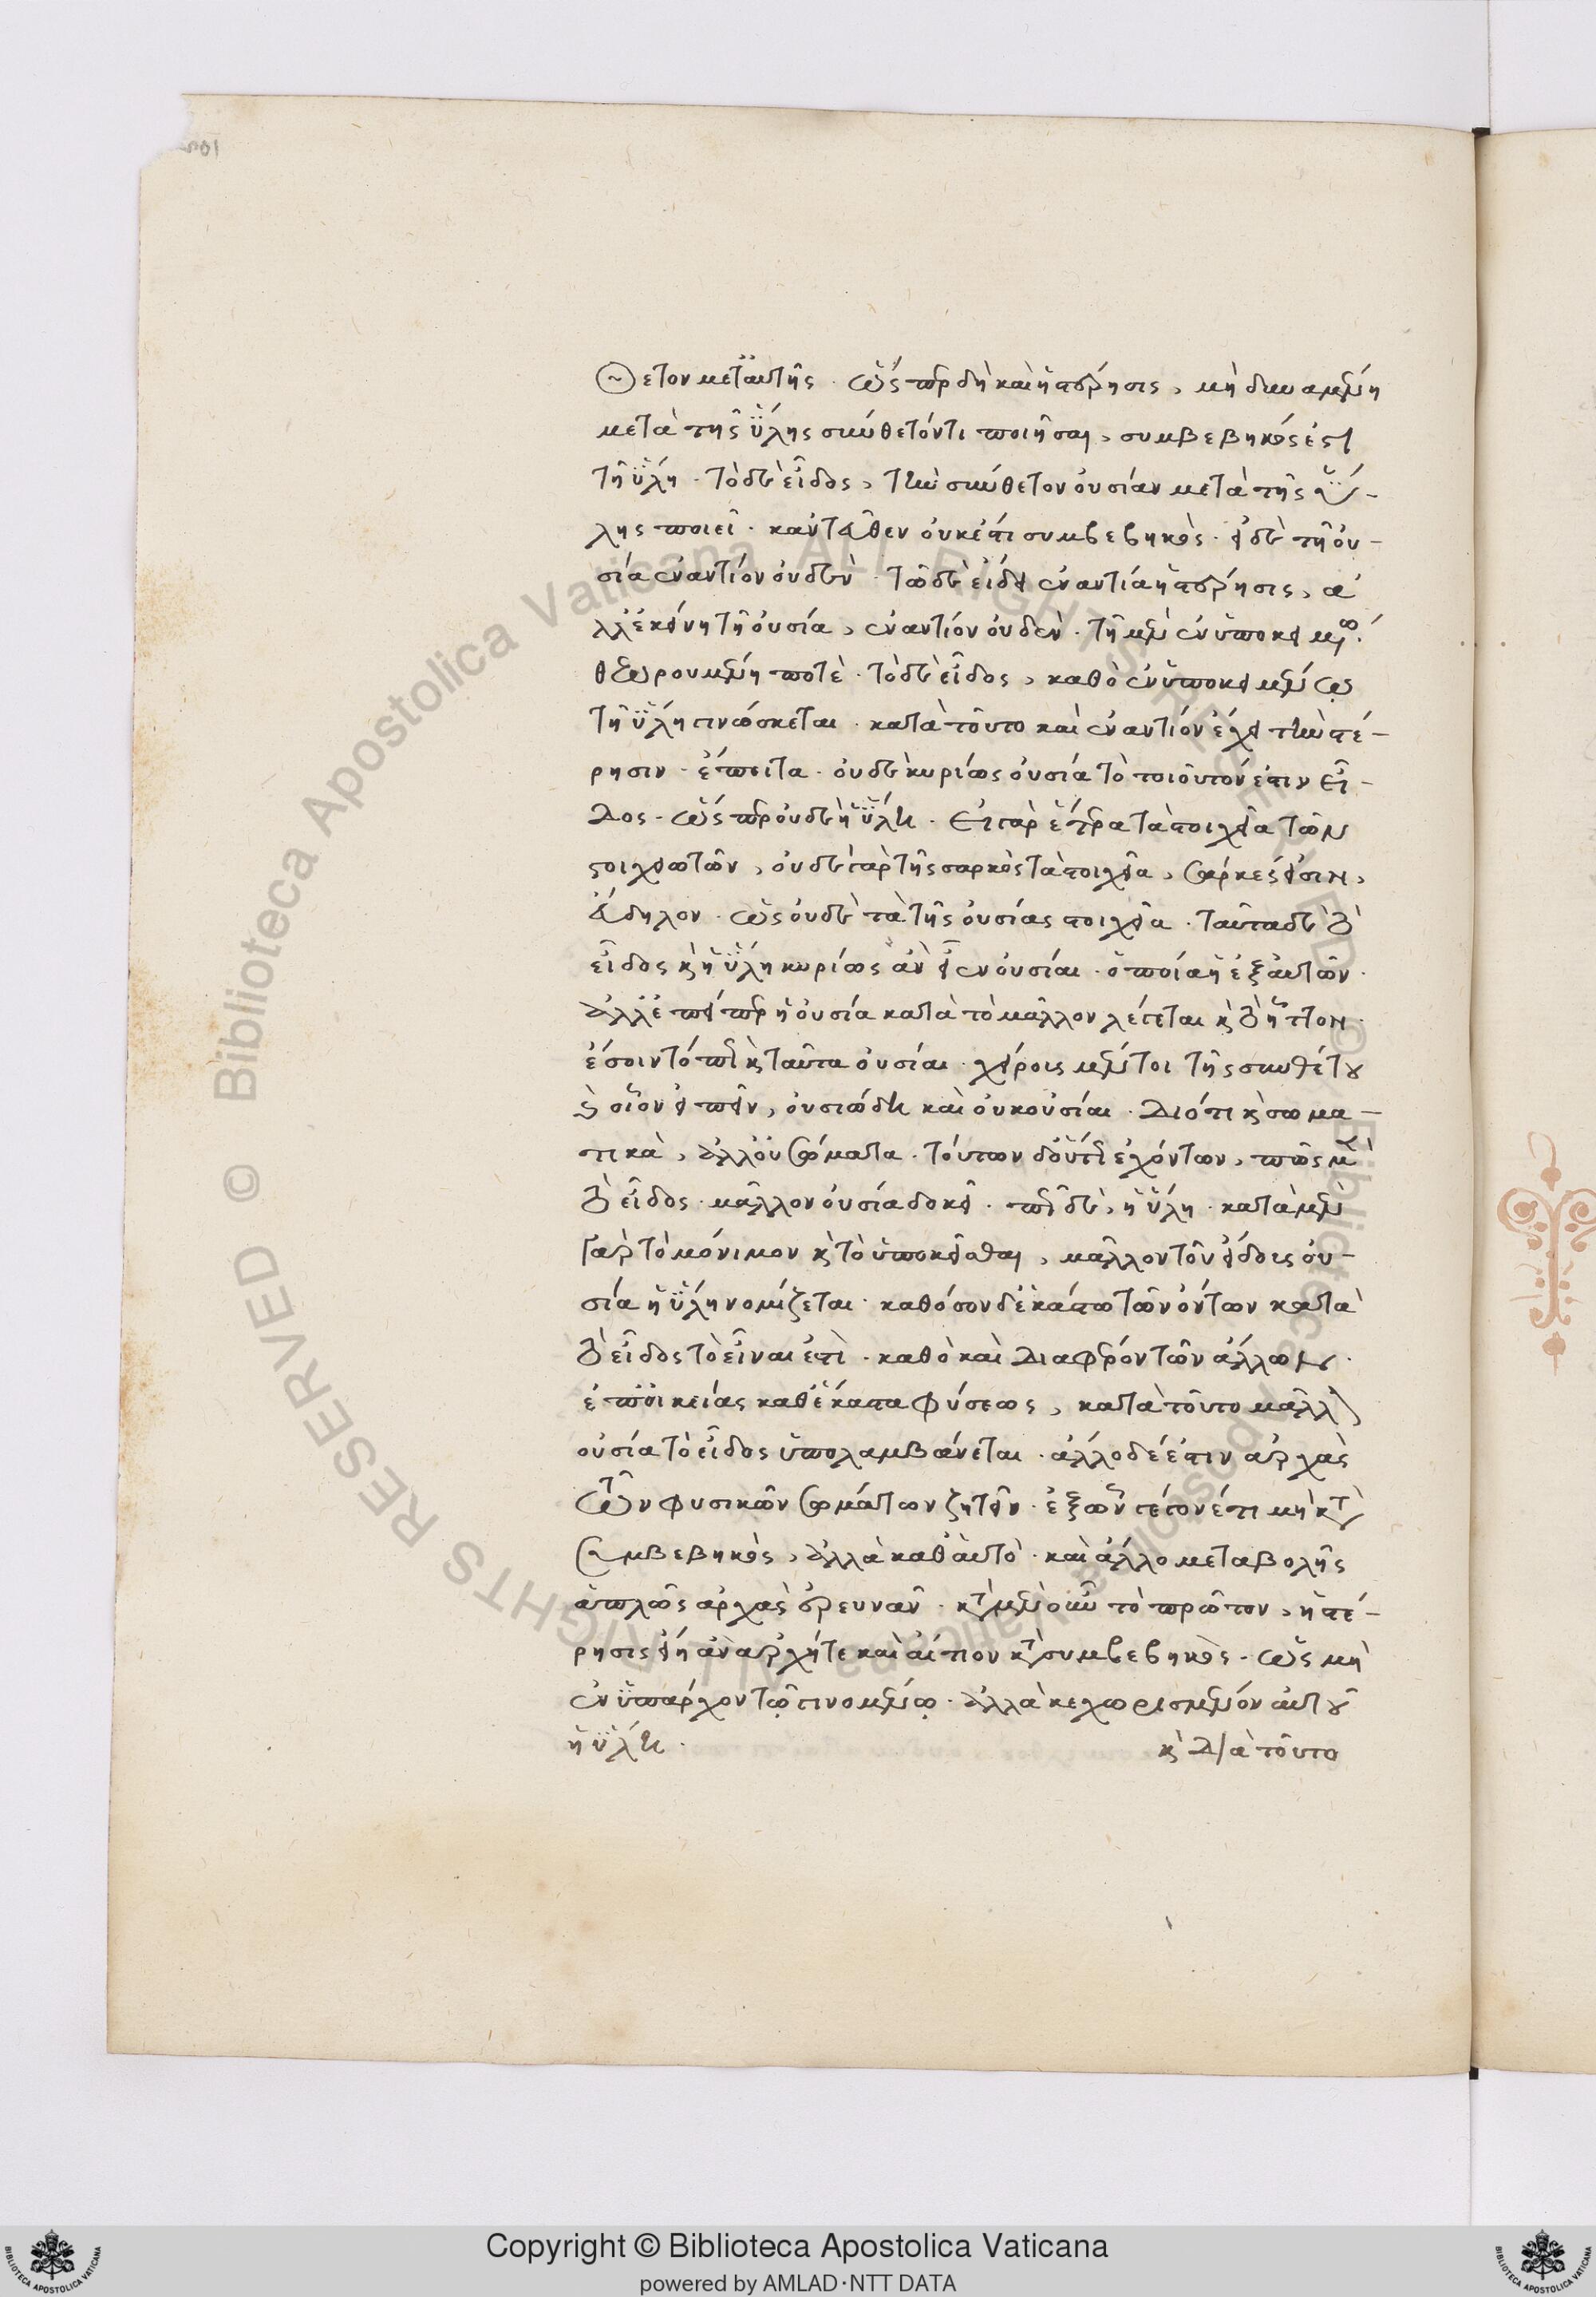 θετον μετ' αὐτῆς. ὥσπερ δὴ καὶ ἡ στέρησις, μὴ δυναμένη
μετὰ τῆς ὕλης σύνθετόν τι ποιῆσαι, συμβεβηκός ἐστι
τῇ ὕλῃ. τὸ δὲ εἶδος, τὴν σύνθετον οὐσίαν μετὰ τῆς ὕ-
λης ποιεῖ. κἀντεῦθεν οὐκέτι συμβεβηκός. εἰ δὲ τῇ οὐ-
σίᾳ ἐναντίον οὐδὲν. τῷ δὲ εἴδει ἐναντία ἡ στέρησις, ἀ
λλ' ἐκείνῃ τῇ οὐσίᾳ, ἐναντίον οὐδὲν. τῇ μὴ ἐν ὑποκειμένῳ
θεωρουμένῃ ποτὲ. τὸ δὲ εἶδος, καθὸ ἐν ὑποκειμένῳ
τῇ ὕλῃ γινώσκεται. κατὰ τοῦτο καὶ ἐναντίον ἔχει τὴν στέ-
ρησιν. ἔπειτα. οὐδὲ κυρίως οὐσία τὸ τοιοῦτόν ἐστιν εἶ-
δος. ὥσπερ οὐδὲ ἡ ὕλη. Εἰ γὰρ ἕτερα τὰ στοιχεῖα τῶν
στοιχειωτῶν, οὐδὲ γὰρ τῆς σαρκὸς τὰ στοιχεῖα, σάρκες εἰσιν,
εὔδηλον. ὡς οὐδὲ τὰ τῆς οὐσίας στοιχεῖα. ταῦτα δὲ τὸ
εἶδος καὶ ἡ ὕλη κυρίως ἂν εἶεν οὐσίαι. ὁποία ἡ ἐξ αὐτῶν.
ἀλλ' ἐπείπερ ἡ οὐσία κατὰ τὸ μᾶλλον λέγεται καὶ τὸ ἧττον.
ἔσοιντό πως καὶ ταῦτα οὐσίαι. χείρους μέντοι τῆς συνθέτου
καὶ οἷον εἰπεῖν, οὐσιώδη καὶ οὐκ οὐσίαι. Διότι καὶ σωμα-
τικὰ, ἀλλ' οὐ σώματα. τούτων δ' οὕτως ἐχόντων, πῶς μὲν
τὸ εἶδος. μᾶλλον οὐσία δοκεῖ. πῶς δὲ, ἡ ὕλη. κατὰ μὲν
γὰρ τὸ μόνιμον καὶ τὸ ὑποκεῖσθαι, μᾶλλον τοῦ εἴδους οὐ-
σία ἡ ὕλη νομίζεται. καθόσον δὲ ἑκάστῳ τῶν ὄντων κατὰ
τὸ εἶδος τὸ εἶναί ἐστὶ. καθὸ καὶ διαφέρον τῶν ἄλλων.
ἐπ' οἰκείας καθ' ἕκαστα φύσεως, κατὰ τοῦτο μᾶλλον
οὐσία τὸ εἶδος ὑπολαμβάνεται. ἄλλο δέ ἐστιν ἀρχὰς
τῶν φυσικῶν σωμάτων ζητεῖν. ἐξ ὧν γέγονέ τι μὴ κατὰ
συμβεβηκὸς, ἀλλὰ καθ' αὑτὸ. καὶ ἄλλο μεταβολῆς
ἁπλῶς ἀρχὰς ἐρευνᾶν. κατὰ μὲν οὖν τὸ πρῶτον, ἡ στέ-
ρησις εἴη ἂν ἀρχή τε καὶ αἴτιον κατὰ συμβεβηκὸς. ὡς μὴ
ἐνυπάρχον τῷ γινομένῳ. ἀλλὰ κεχωρισμένον αὐτοῦ
ἡ ὕλη. καὶ διὰ τοῦτο